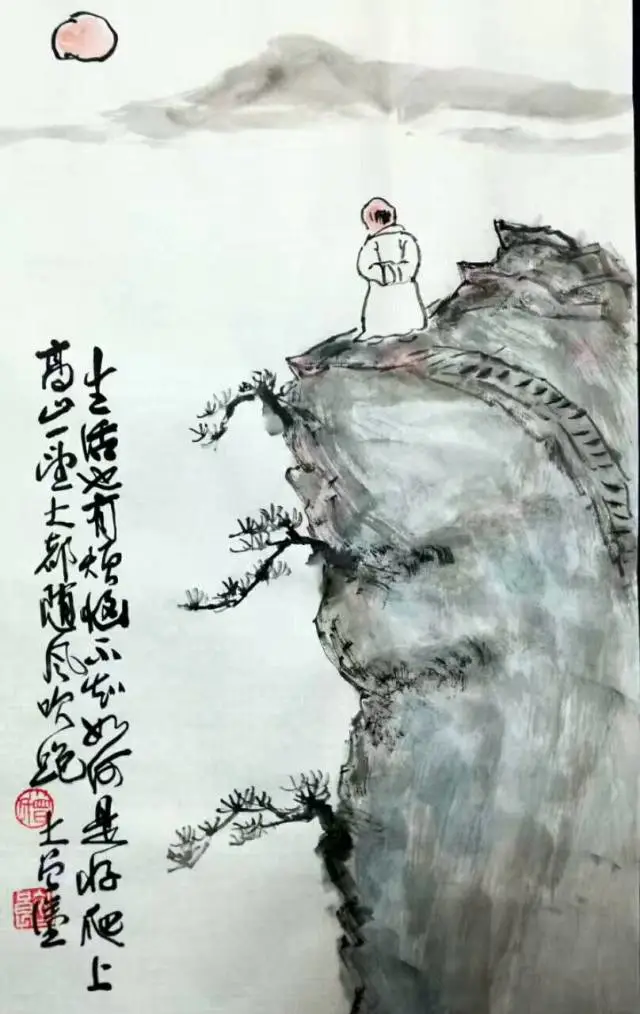 生活也有烦恼不知如何是好爬上
高山一望大都随风吹跑